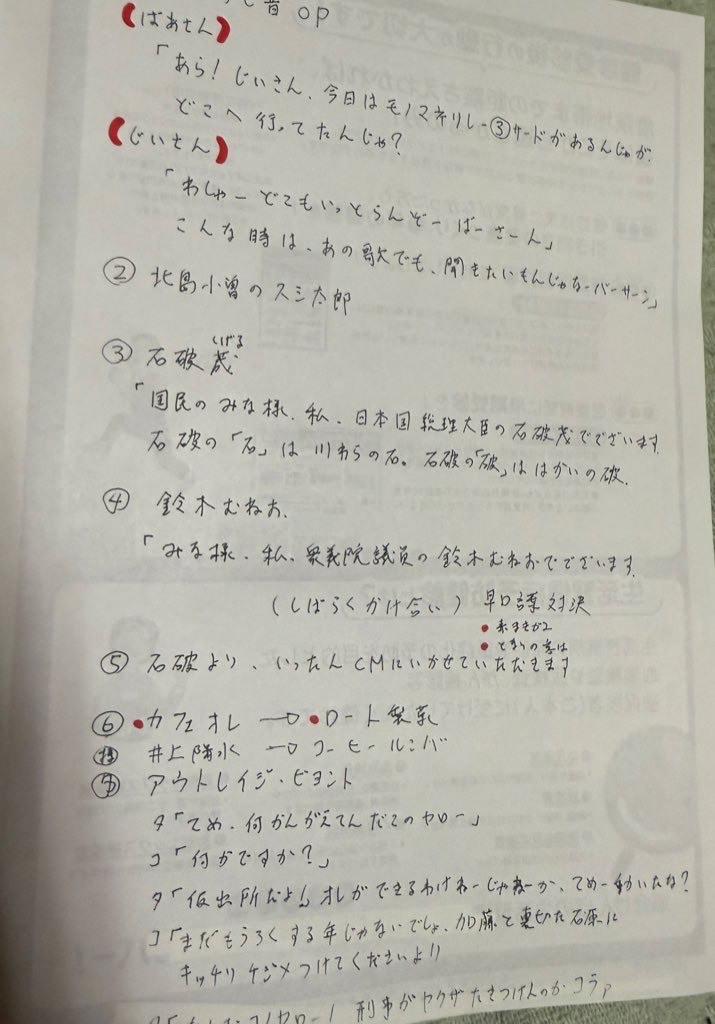 昔 OP
(ばあさん)
「あら! じいさん、今日はモノマネリレー③サードがあるんじゃが、
どこへ行ってたんじゃ?
(じいさん)
「わしゃーどこもいっとらんぞーばーさーん」
こんな時は、あの歌でも、聞きたいもんじゃなーバーサーン」
② 北島小曽のスミ太郎
③ 石破茂
しげる
「国民のみな様、私、日本国総理大臣の石破茂でございます
石破の「石」は川わらの石。石破の「破」ははかいの破、
④ 鈴木むねお、
「みな様、私、衆義院議員の鈴木むねおでございます。
(しばらくかけ合い) 早口諢対決
• 赤まきがみ
• となりの客は
⑤ 石破より、いったんCMにいかせていただきます
⑥ •カフェオレ →ロ •ロート製薬
井上陽水 →ロ コーヒールンバ
アウトレイジ・ビヨンド
タ「てめ、何かんがえてんだこのヤロー」
コ「何がですか?」
タ「仮出所だよ! オレができるわけねーじゃねーか、てめー動いたな?
コ「まだもうろくする年じゃないでしょ、加藤と裏切た石原に
キッチリケジメつけてくださいよ!!
コノヤロー! 刑事がヤクザたきつけんのかコラァ